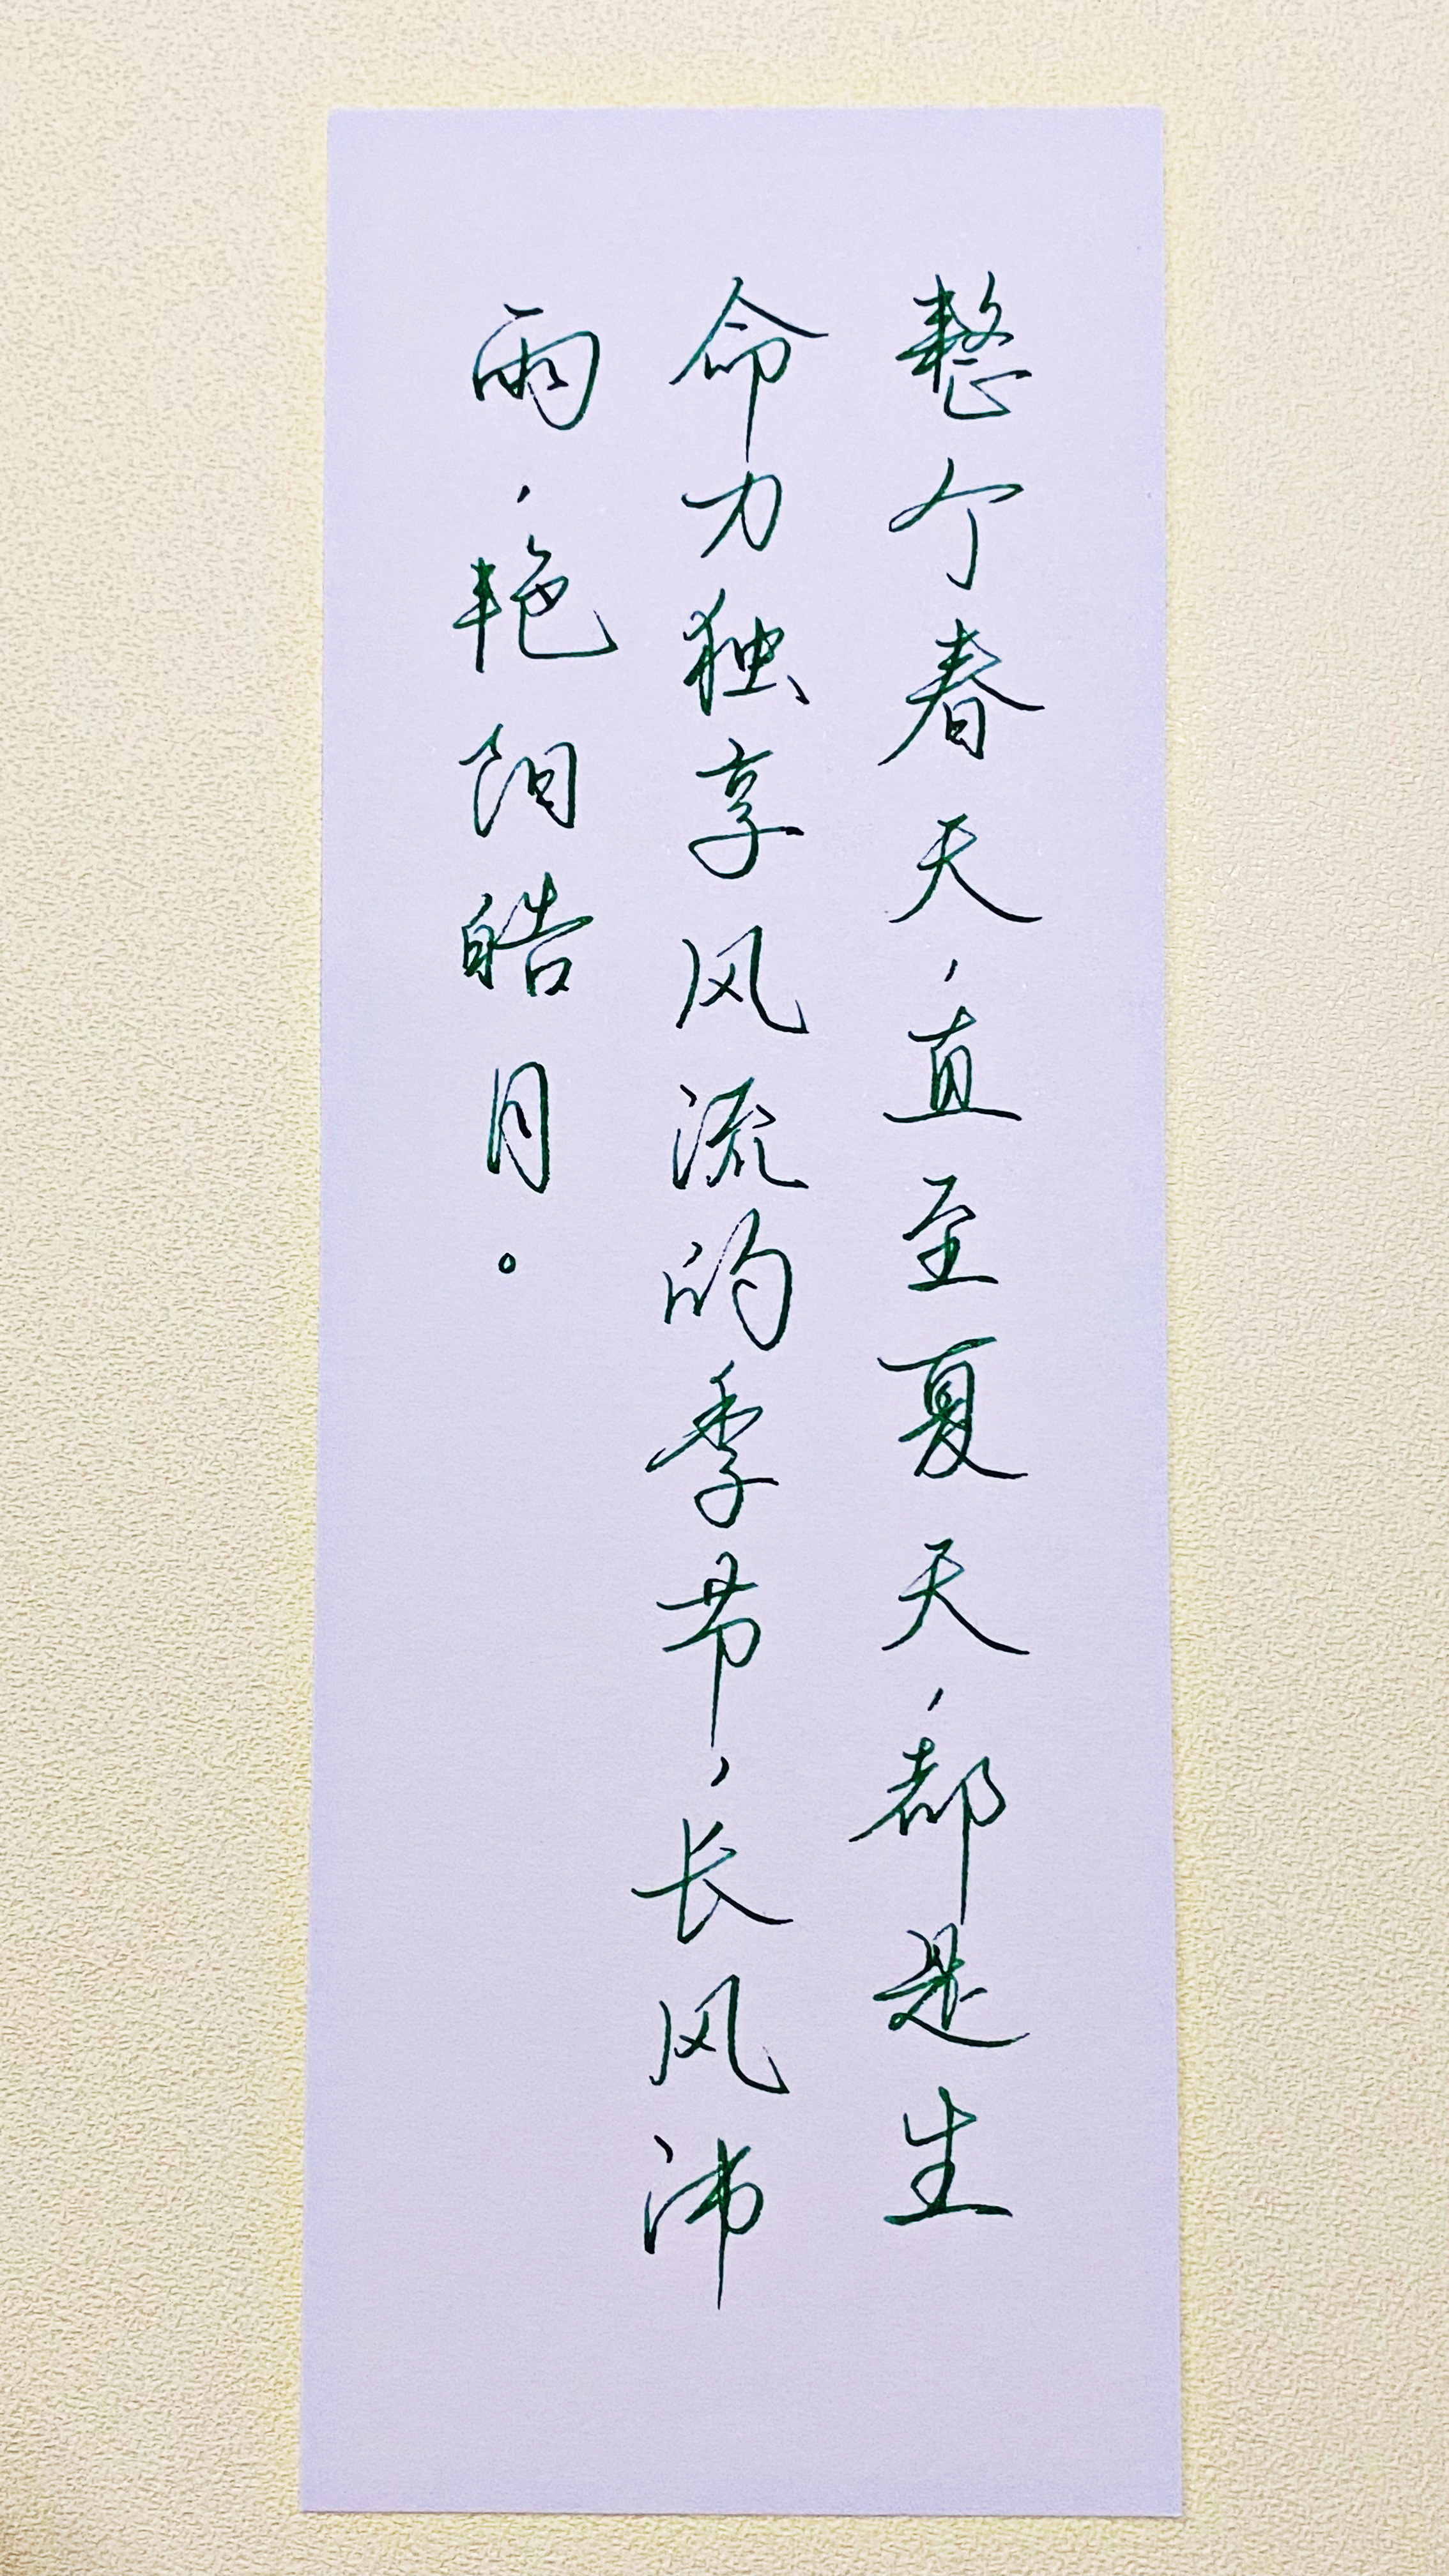 整个春天，直至夏天，都是生
命力独享风流的季节，长风沛
雨，艳阳皓月。